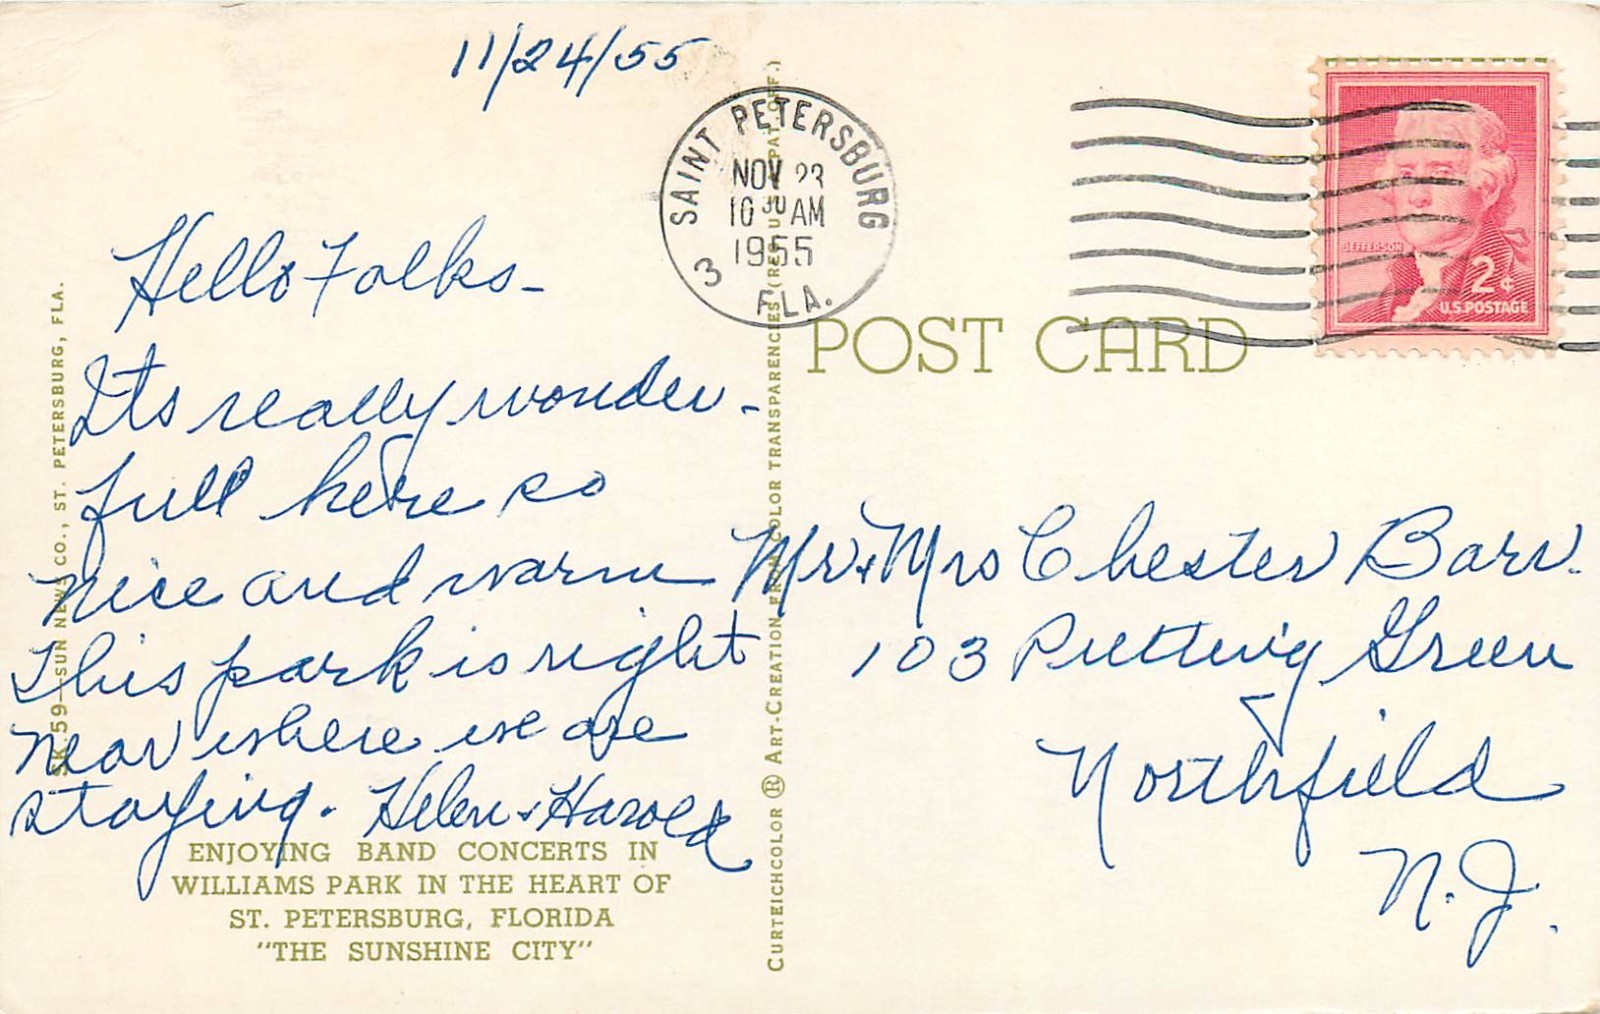 11/24/55
SAINT PETERSBURG
NOV 23
10 30 AM
1955
3 FLA.
JEFFERSON
2¢
U.S. POSTAGE
POST CARD
Hello Folks-
Its really wonder-
full here so
nice and warm
This park is right
near where we are
staying. Helen & Harold
Mr & Mrs Chester Barr.
103 Putting Green
Northfield
N.J.
ENJOYING BAND CONCERTS IN
WILLIAMS PARK IN THE HEART OF
ST. PETERSBURG, FLORIDA
"THE SUNSHINE CITY"
SK.59—SUN NEWS CO., ST. PETERSBURG, FLA.
CURTEICHCOLOR ® ART-CREATION FROM COLOR TRANSPARENCIES (REG. U.S. PAT. OFF.)